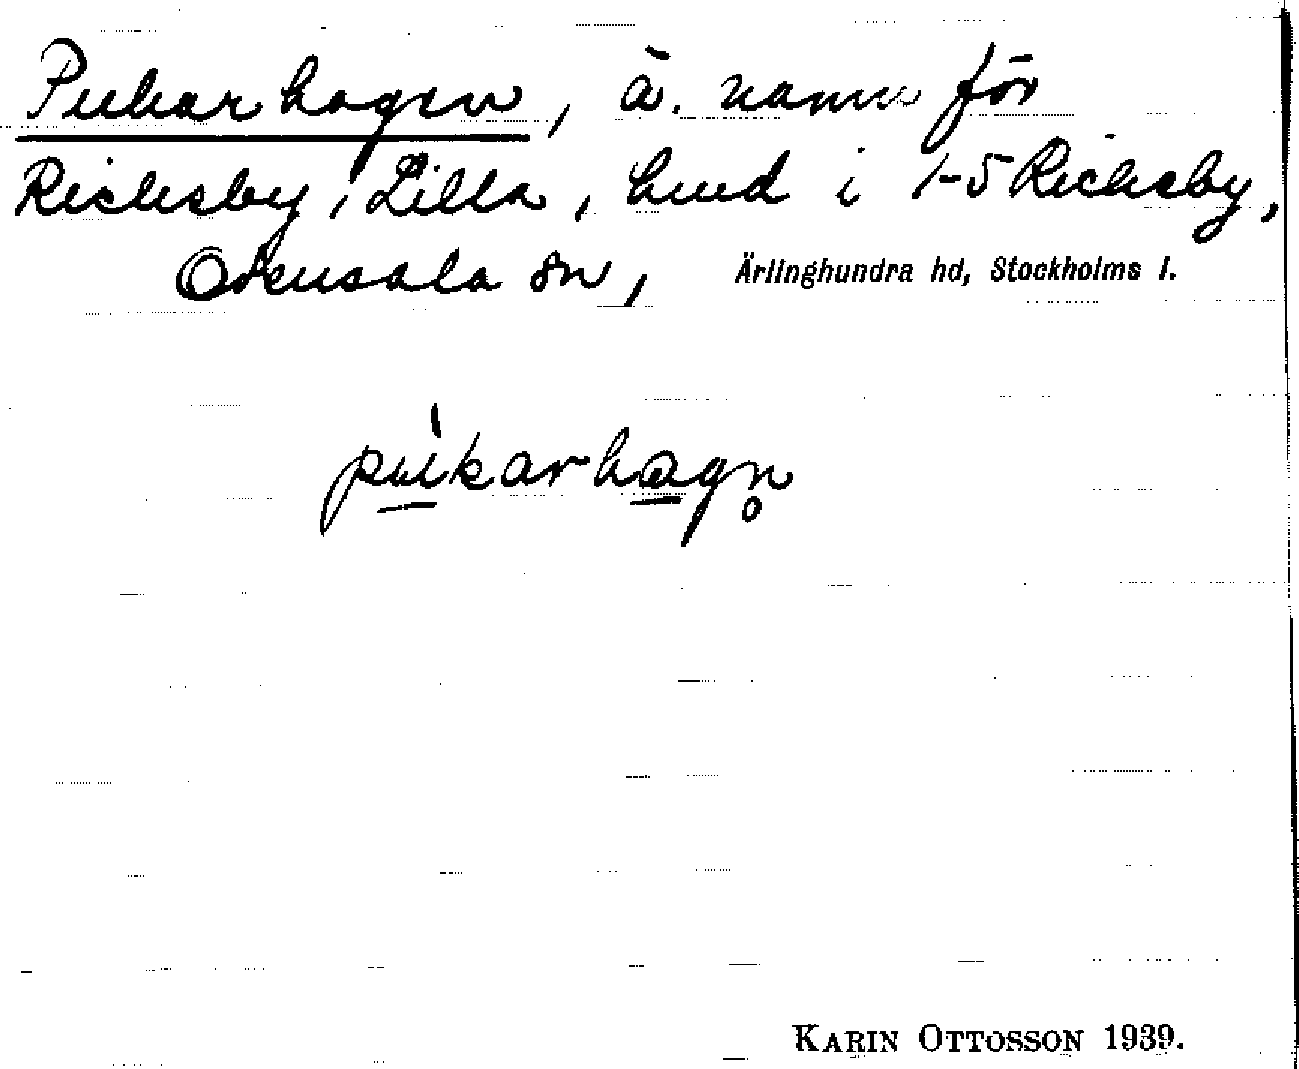 Pukarhagen, ä. namn för
Rickeby, Lilla, hmd i 1-5 Rickeby,
Odensala sn, Ärlinghundra hd, Stockholms l.
pukarhagn̥
KARIN OTTOSSON 1939.